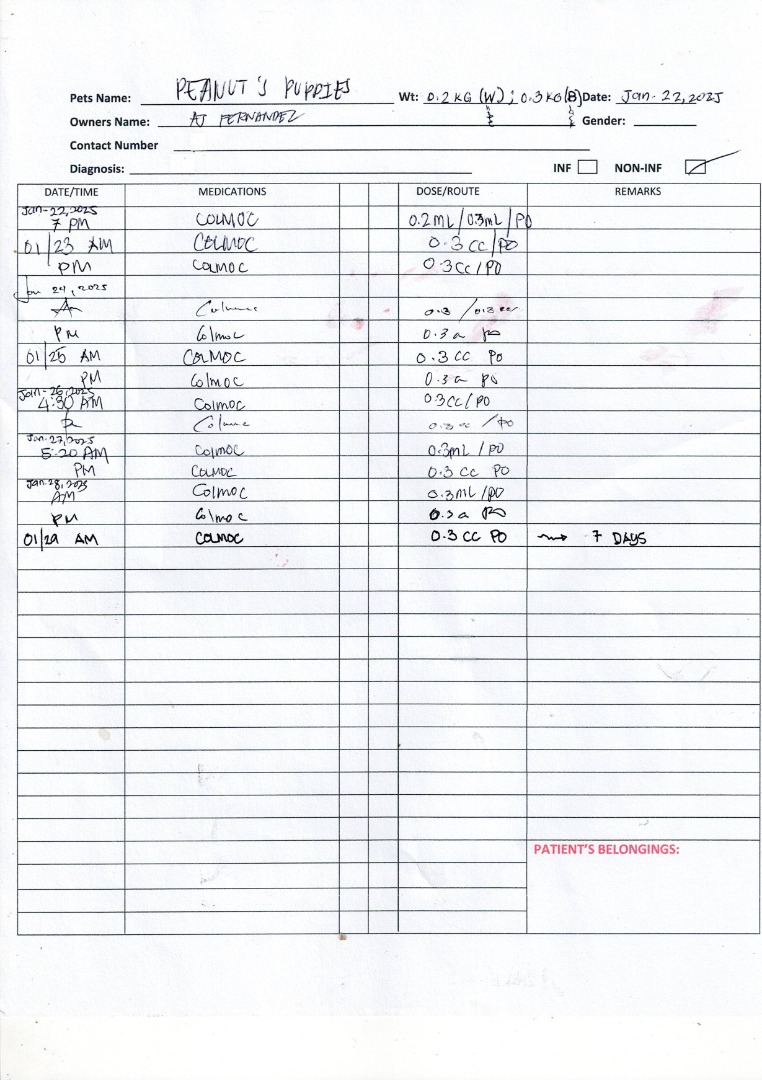 Pets Name: PEANUT'S PUPPIES Wt: 0.2 KG (W) ; 0.3 KG (B) Date: Jan. 22, 2025
Owners Name: AJ FERNANDEZ Gender:
Contact Number
Diagnosis: INF NON-INF
DATE/TIME MEDICATIONS DOSE/ROUTE REMARKS
Jan-22,2025
7 PM COLMOC 0.2 mL / 0.3mL / PO
01/23 AM COLMOC 0.3 cc / PO
PM COLMOC 0.3 cc / PO
Jan 24, 2025
A 0.3 / 0.3 cc
PM Colmoc 0.3 PO
01/25 AM COLMOC 0.3 CC PO
PM Colmoc 0.3 PO
Jan-26,2025
4:30 AM Colmoc 0.3CC/PO
/PO
Jan-27,2025
5:20 AM Colmoc 0.3mL / PO
PM COLMOC 0.3 CC PO
Jan-28,2025
AM Colmoc 0.3mL /PO
PM Colmoc 0.3 PO
01/29 AM COLMOC 0.3 CC PO → 7 DAYS
PATIENT'S BELONGINGS: